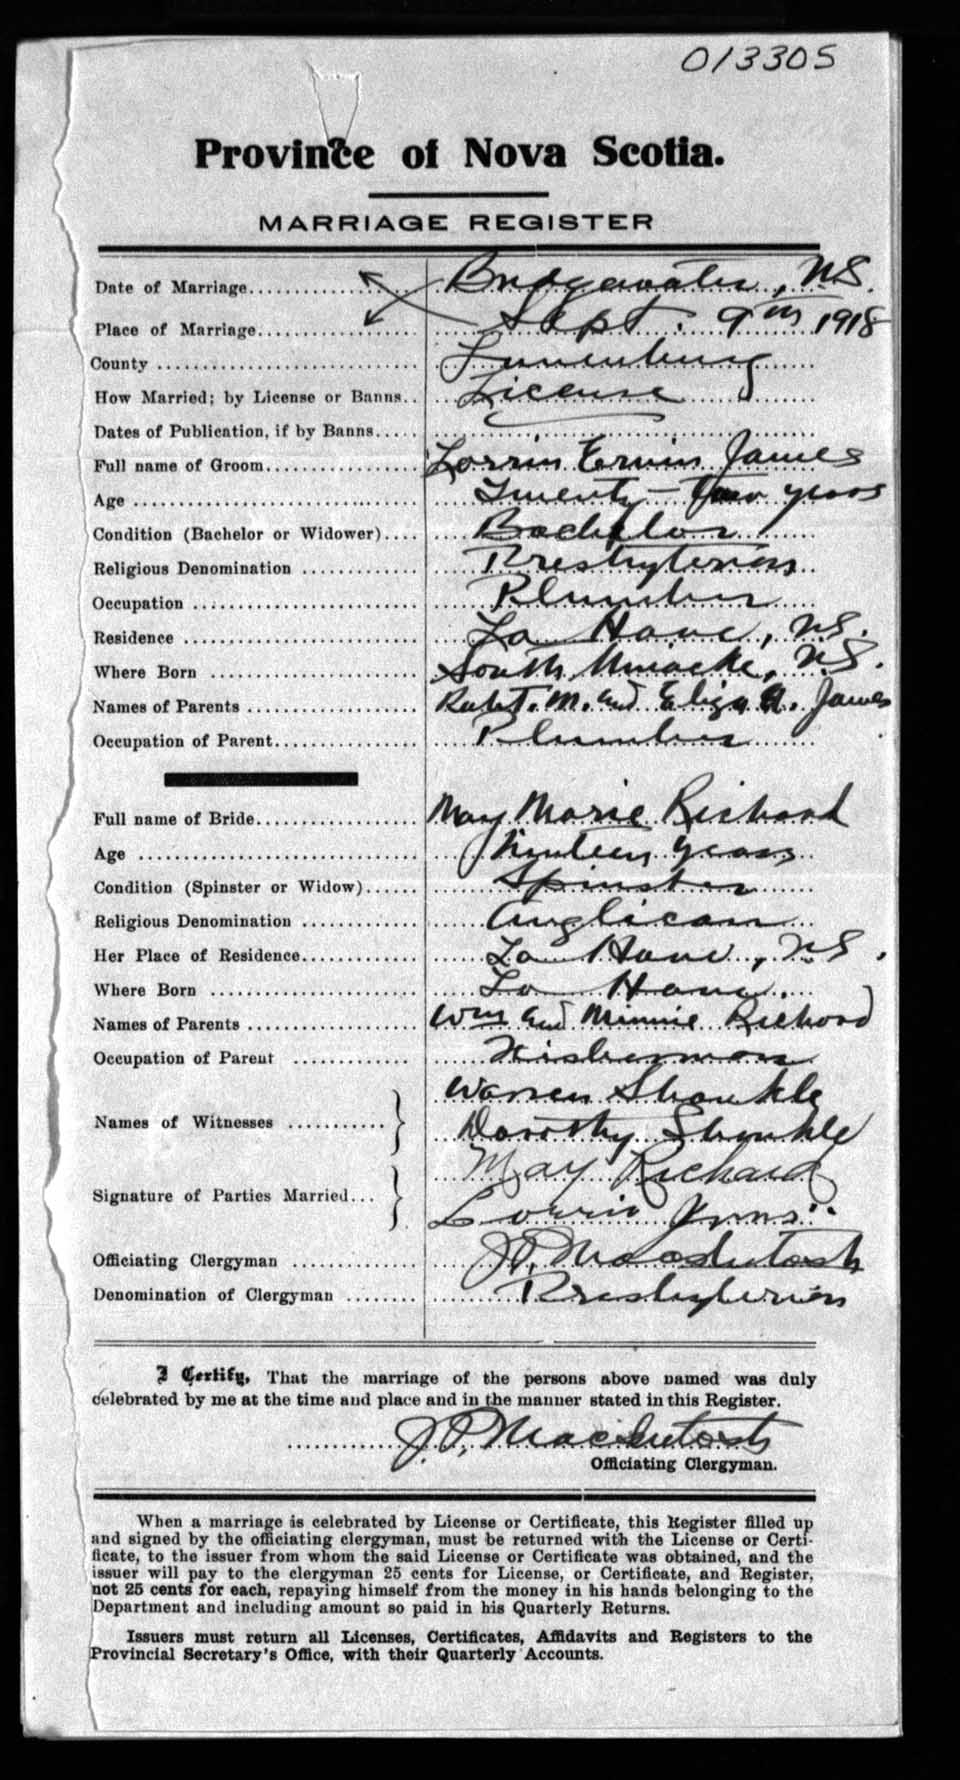 013305
Province of Nova Scotia.
MARRIAGE REGISTER
Date of Marriage Bridgewater, N.S.
Place of Marriage Sept. 9th 1918
County Lunenburg
How Married; by License or Banns License
Dates of Publication, if by Banns
Full name of Groom Lorrin Erwin James
Age Twenty-two years
Condition (Bachelor or Widower) Bachelor
Religious Denomination Presbyterian
Occupation Plumber
Residence La Have, N.S.
Where Born South Uniacke, N.S.
Names of Parents Robt. M. and Eliza A. James
Occupation of Parent Plumber
Full name of Bride May Marie Richard
Age Nineteen years
Condition (Spinster or Widow) Spinster
Religious Denomination Anglican
Her Place of Residence La Have, N.S.
Where Born La Have.
Names of Parents Wm and Minnie Richard
Occupation of Parent Fisherman
Warren Shankle
Names of Witnesses
Dorothy Shankle
May Richard
Signature of Parties Married
Lorrin
Officiating Clergyman J.P. MacIntosh
Denomination of Clergyman Presbyterian
I Certify, That the marriage of the persons above named was duly
celebrated by me at the time and place and in the manner stated in this Register.
J.P. MacIntosh
Officiating Clergyman.
When a marriage is celebrated by License or Certificate, this Register filled up
and signed by the officiating clergyman, must be returned with the License or Certi-
ficate, to the issuer from whom the said License or Certificate was obtained, and the
issuer will pay to the clergyman 25 cents for License, or Certificate, and Register,
not 25 cents for each, repaying himself from the money in his hands belonging to the
Department and including amount so paid in his Quarterly Returns.
Issuers must return all Licenses, Certificates, Affidavits and Registers to the
Provincial Secretary's Office, with their Quarterly Accounts.